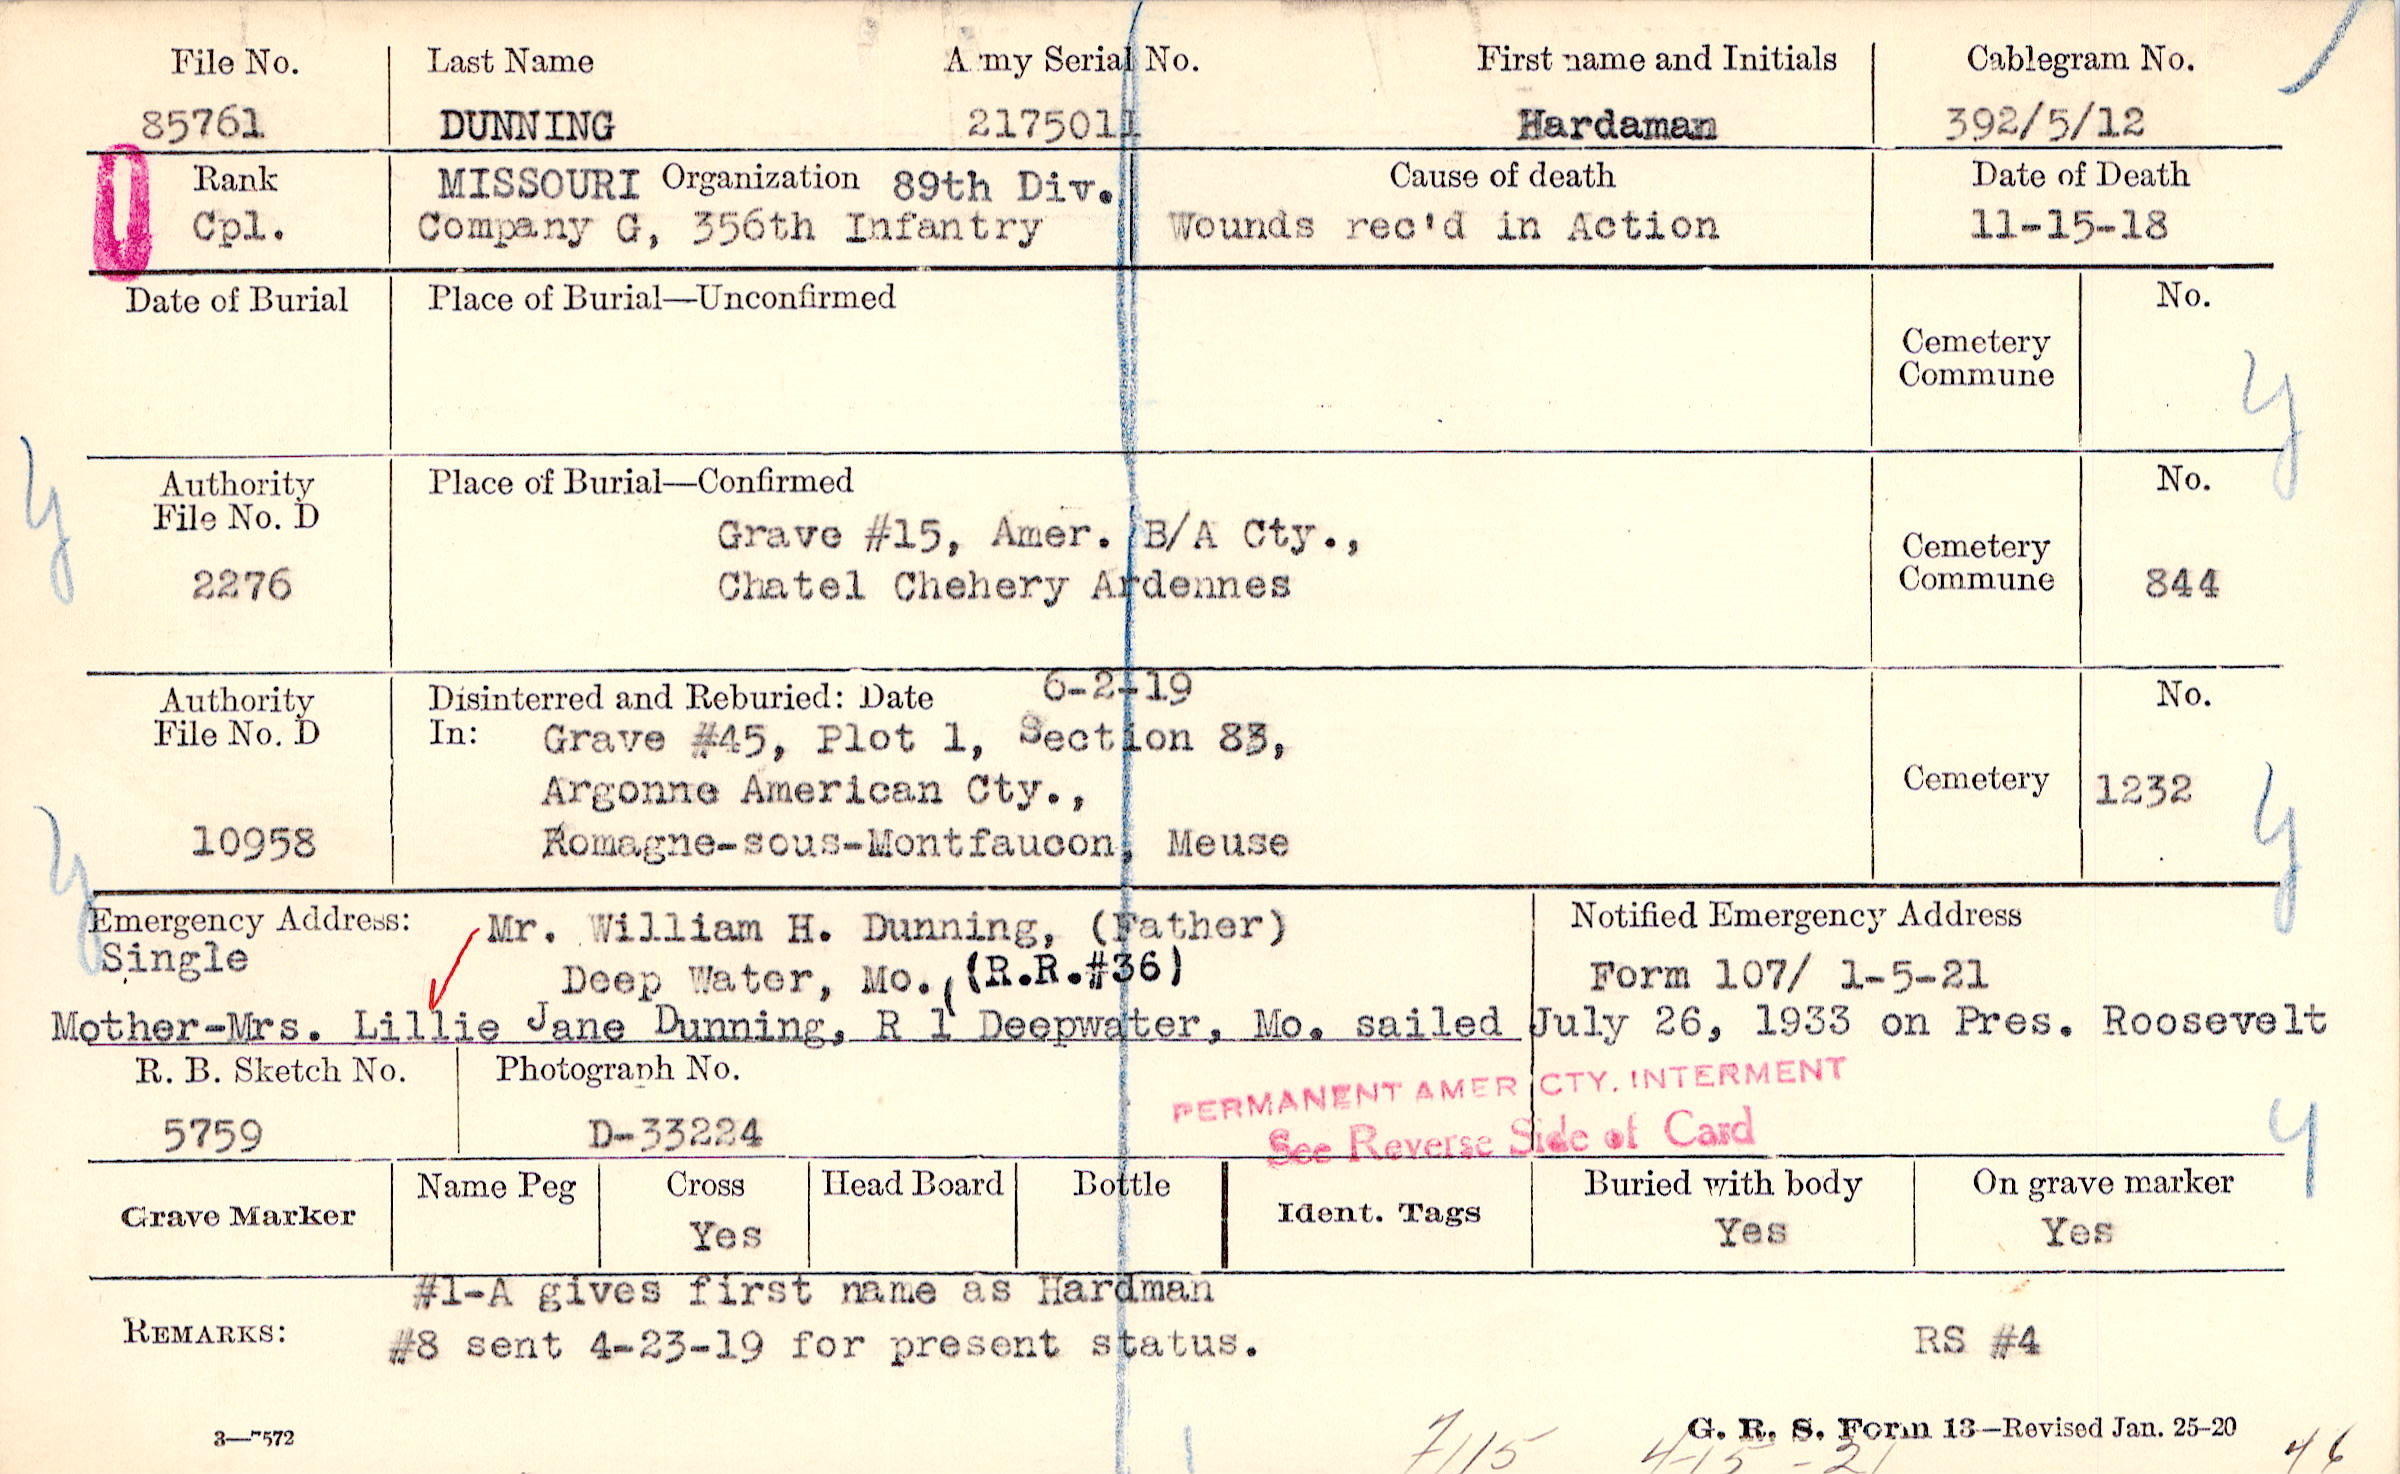 File No. Last Name Army Serial No. First name and Initials Cablegram No.
85761 DUNNING 2175011 Hardaman 392/5/12
Rank MISSOURI Organization 89th Div. Cause of death Date of Death
Cpl. Company G, 356th Infantry Wounds rec'd in Action 11-15-18
Date of Burial Place of Burial—Unconfirmed No.
Cemetery
Commune
Authority Place of Burial—Confirmed No.
File No. D
Grave #15, Amer. B/A Cty., Cemetery
2276 Chatel Chehery Ardennes Commune 844
Authority Disinterred and Reburied: Date 6-2-19 No.
File No. D In: Grave #45, Plot 1, Section 83,
Argonne American Cty., Cemetery 1232
10958 Romagne-sous-Montfaucon, Meuse
Emergency Address: Mr. William H. Dunning, (Father) Notified Emergency Address
Single Deep Water, Mo., (R.R.#36) Form 107/ 1-5-21
Mother-Mrs. Lillie Jane Dunning, R 1 Deepwater, Mo. sailed July 26, 1933 on Pres. Roosevelt
R. B. Sketch No. Photograph No. PERMANENT AMER CTY. INTERMENT
5759 D-33224 See Reverse Side of Card
Grave Marker Name Peg Cross Head Board Bottle Ident. Tags Buried with body On grave marker
Yes Yes Yes
#1-A gives first name as Hardman
REMARKS: #8 sent 4-23-19 for present status. RS #4
3—7572 G. R. S. Form 13—Revised Jan. 25-20
7115 4-15-21 46